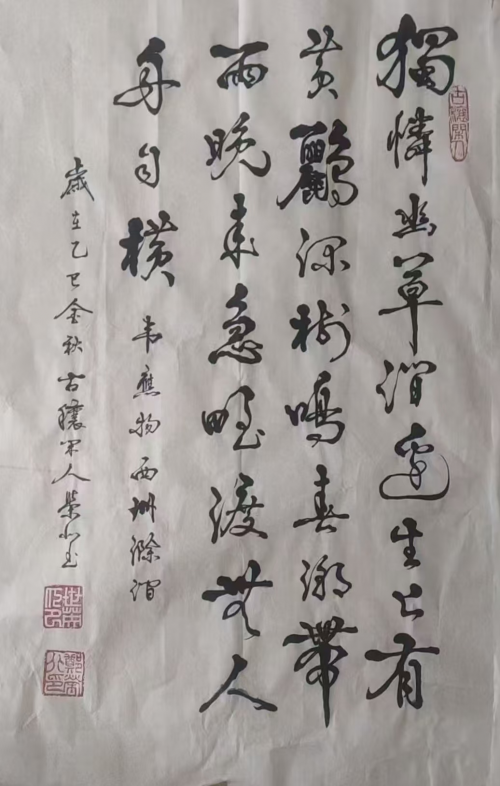 獨憐幽草澗邊生上有
黃鸝深樹鳴春潮帶
雨晚來急野渡無人
舟自橫 韋應物西州滁澗
歲在乙巳金秋古穰閑人榮書
古穰閑人